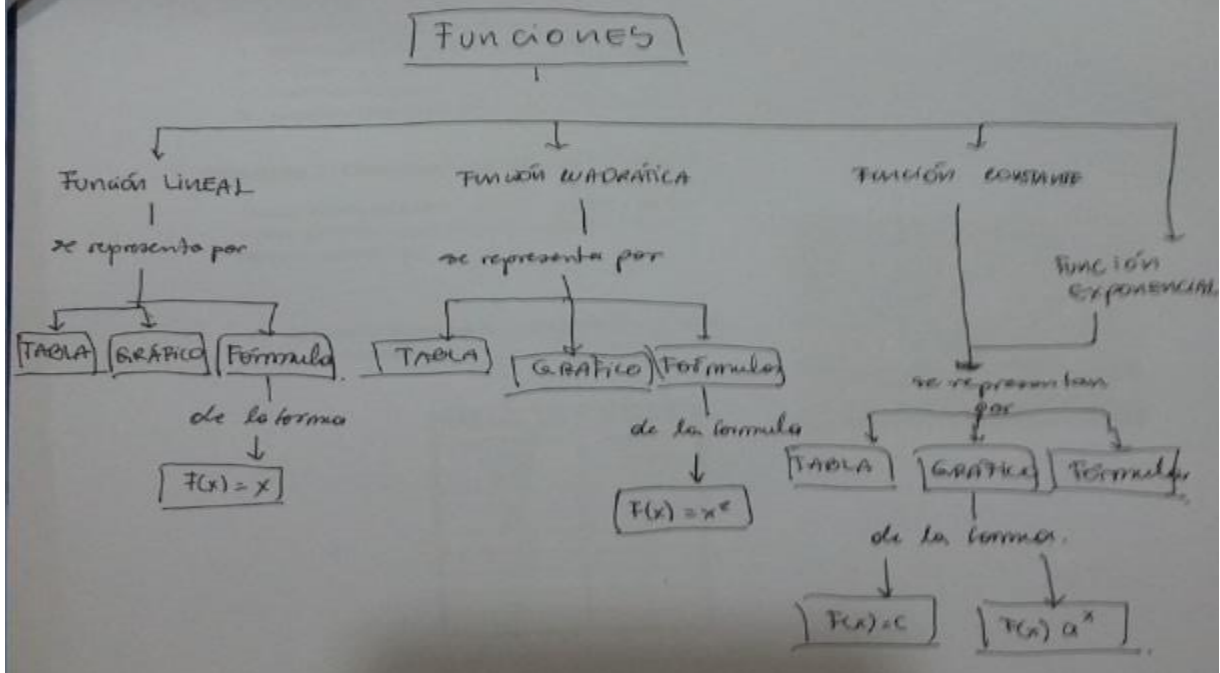 Funciones
Función LINEAL
se representa por
TABLA
GRÁFICO
Fórmula
de la forma
F(x) = x
Función CUADRÁTICA
se representa por
TABLA
GRAFICO
Formulas
de la formula
F(x) = x²
Función CONSTANTE
Función
EXPONENCIAL
se representan
por
TABLA
GRAFICO
Formula
de la forma.
F(x) = c
F(x) a^x